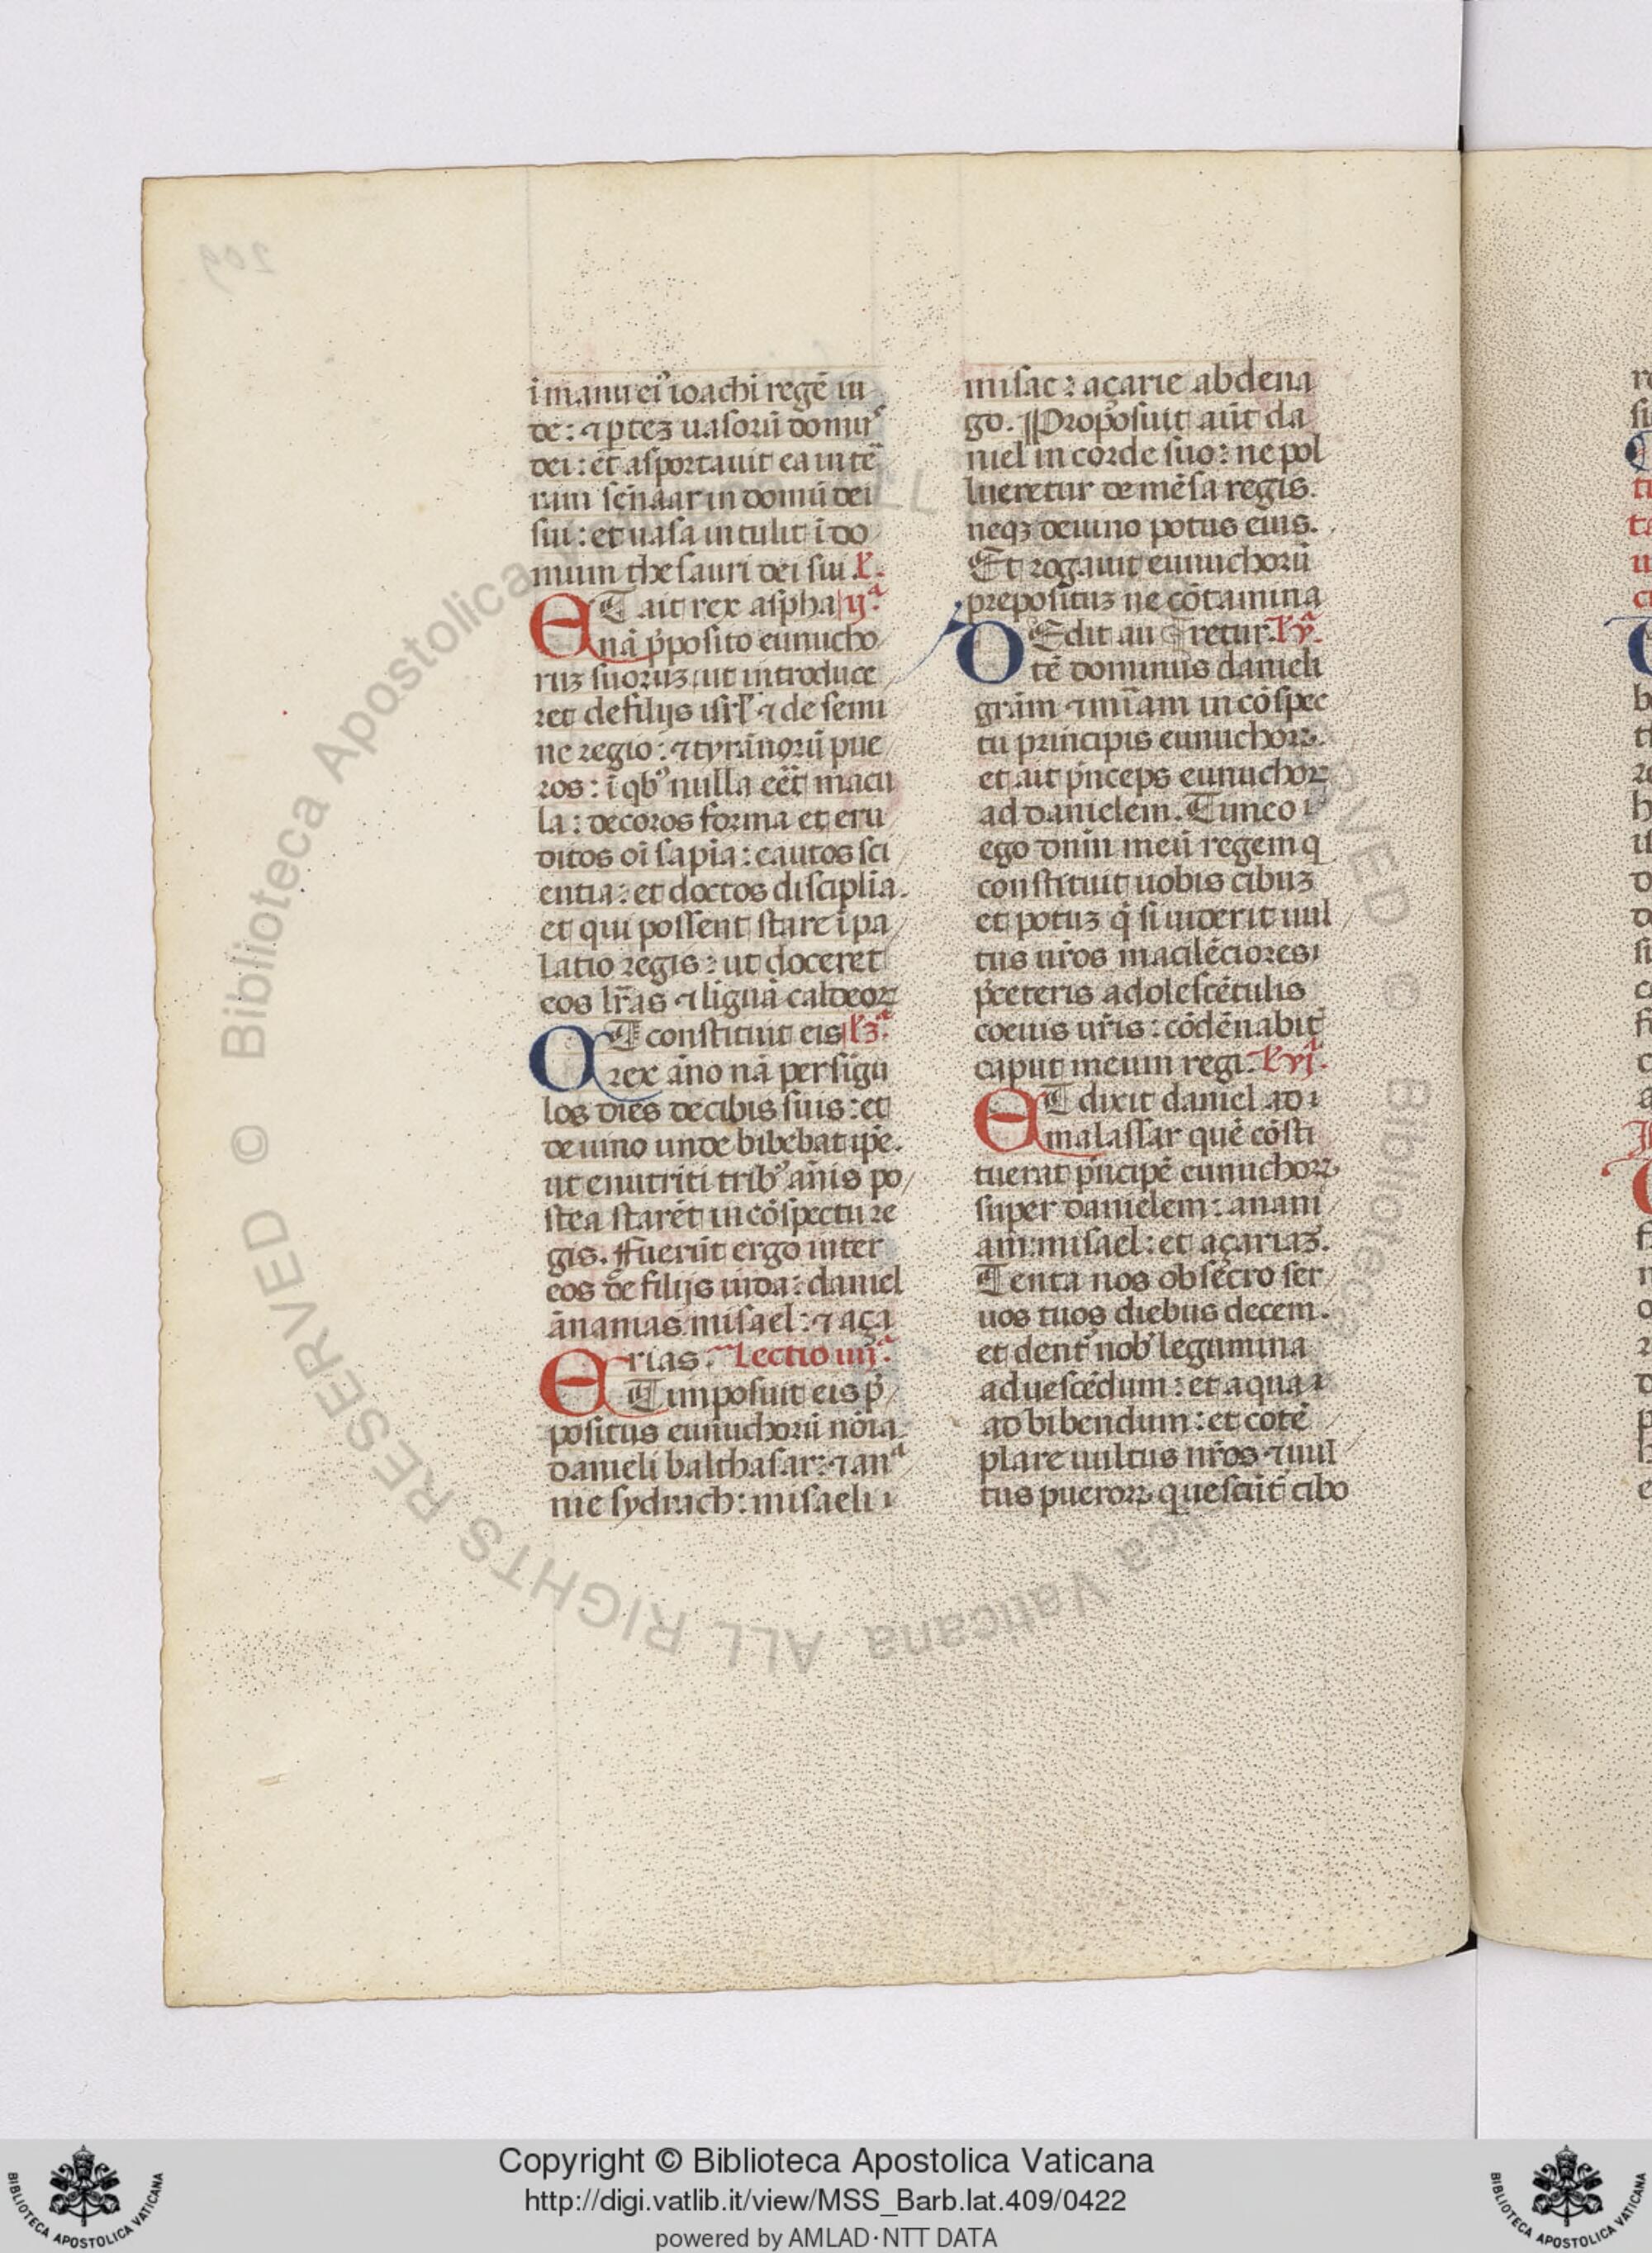 ī manu ei᷒ ioachī regē iu
de: ⁊ ꝑteʒ uasoꝝ̄ domus
dei: et asportauit ea in ter
ram sēnaar in domū dei
sui: et uasa intulit ī do
mum thesauri dei sui. ł.
ET ait rex aspha ijᵃ.
nā p̄posito eunucho
ruʒ suoruʒ ut introduce
ret de filijs isrl̄ ⁊ de semi
ne regio: ⁊ tyrānorū pue
ros: ī qb᷒ nulla eēt macu
la: decoros forma et eru
ditos oī sapīa: cautos sci
entia: et doctos disciplīa.
et qui possent stare ī pa
latio regis: ut doceret
eos lr̄as ⁊ līguā caldeoꝝ
ET constituit eis ł 3ᵃ.
rex ānonā per sīgu
los dies de cibis suis: et
de uino unde bibebat ip̄e.
ut enutriti trib᷒ ānis po
stea starēt in cōspectu re
gis. Fuerūt ergo inter
eos de filijs iuda: daniel
ānanias misael: ⁊ aça
rias. Lectio iiijᵃ.
ET imposuit eis p̄
positus eunuchorū nōīa
danieli balthasar: ⁊ anᵃ
nie sydrach: misaeli
misac: açarie abdena
go. Proposuit aūt da
niel in corde suo: ne pol
lueretur de mēsa regis.
neqʒ de uino potus eius.
Et rogauit eunuchorū
prepositus ne cōtamina
DEdit au retur. ł vᵃ.
tē dominus danieli
grām ⁊ mīam in cōspec
tu principis eunuchoꝝ.
et ait p̄nceps eunuchoꝝ
ad danielem. Timeo
ego dnm̄ meū regem q
constituit uobis cibuʒ
et potuʒ q̄ si uiderit uul
tus ur̄os macilēciores
p̄ceteris adolescētulis
coeuis ur̄is: cōdēnabit
caput meum regi. ł vjᵃ.
ET dixit daniel ad
malassar quē cōsti
tuerat p̄ncipē eunuchoꝝ
super danielem: anani
am: misael: et açariaʒ.
Tenta nos obsecro ser
uos tuos diebus decem.
et dent᷑ nob᷒ legumina
ad uescēdum: et aqua
ad bibendum: et cōtē
plare uultus nr̄os ⁊ uul
tus pueroꝝ que scūt᷑ cibo
Copyright © Biblioteca Apostolica Vaticana
http://digi.vatlib.it/view/MSS_Barb.lat.409/0422
powered by AMLAD·NTT DATA